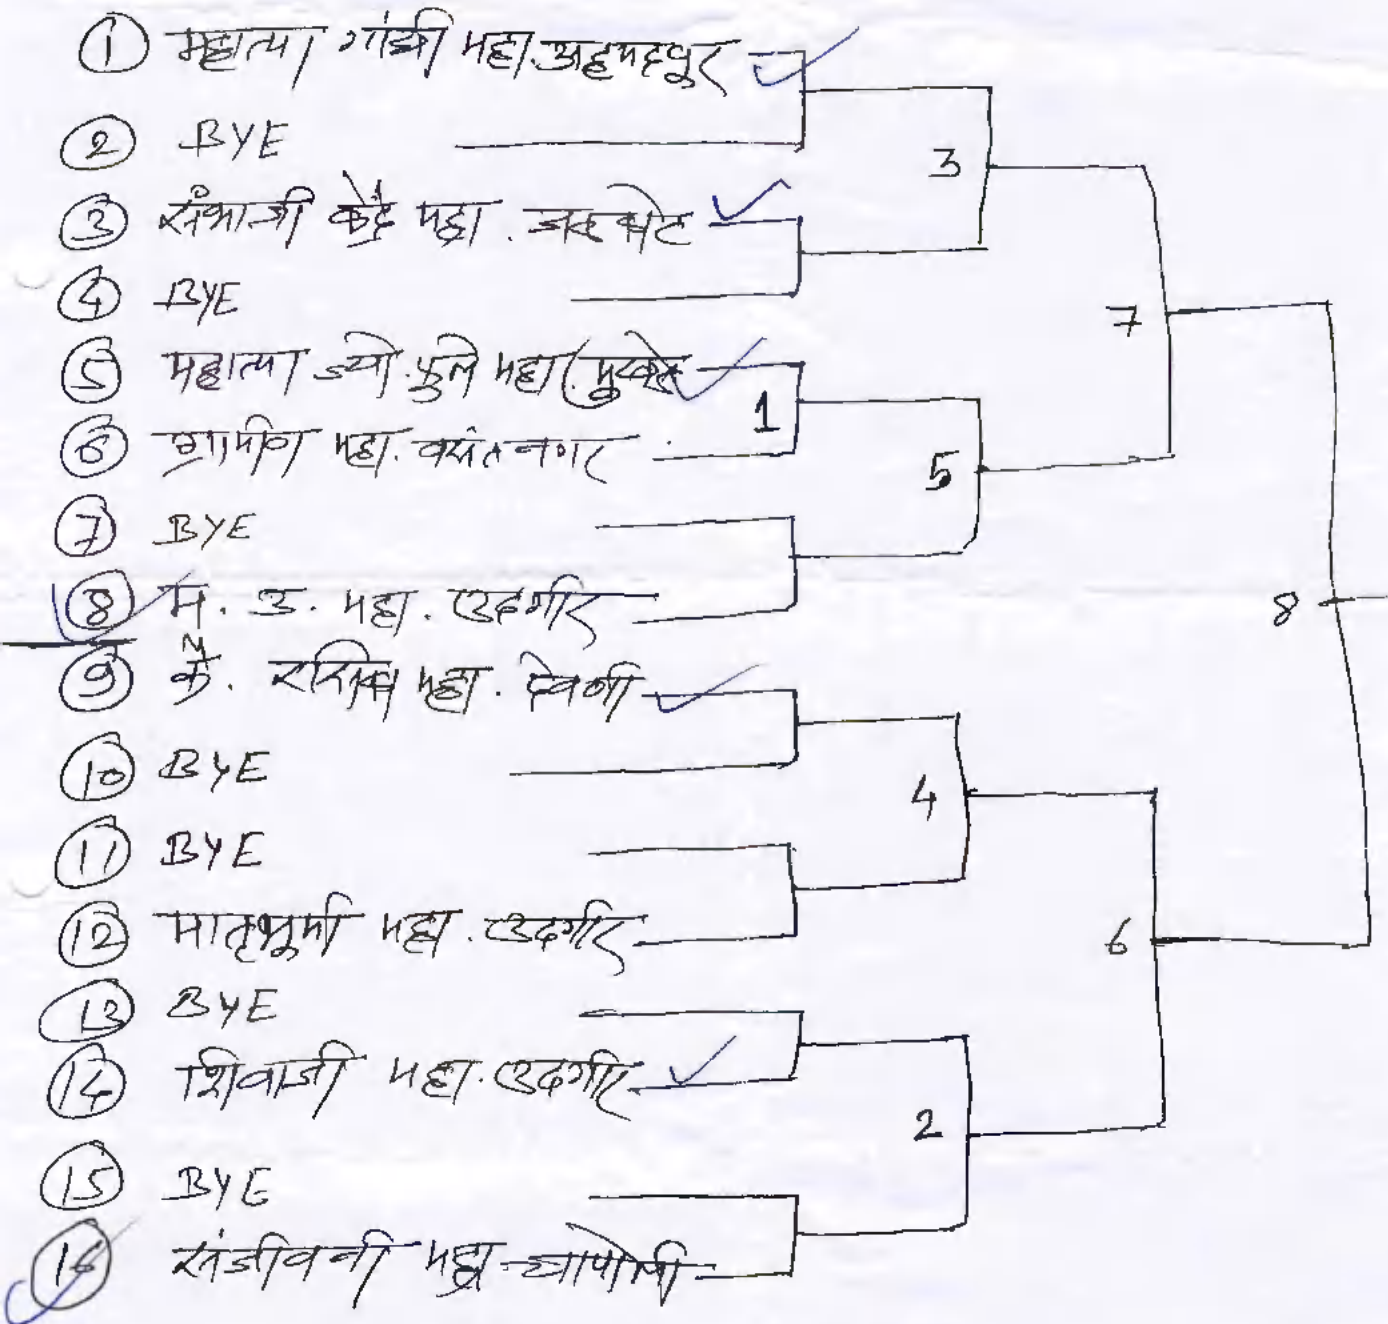 ① महात्मा गांधी महा. अहमदपूर
② BYE
3
③ संभाजी केंद्रे महा. जळकोट
④ BYE
7
⑤ महात्मा ज्यो. फुले महा. मुखेड
1
⑥ ग्रामीण महा. वसंतनगर
5
⑦ BYE
⑧ म. उ. महा. उदगीर
8
⑨ कै. रसिका महा. देवणी
⑩ BYE
4
⑪ BYE
⑫ मातृभूमी महा. उदगीर
6
⑬ BYE
⑭ शिवाजी महा. उदगीर
2
⑮ BYE
⑯ संजीवनी महा. चापोली